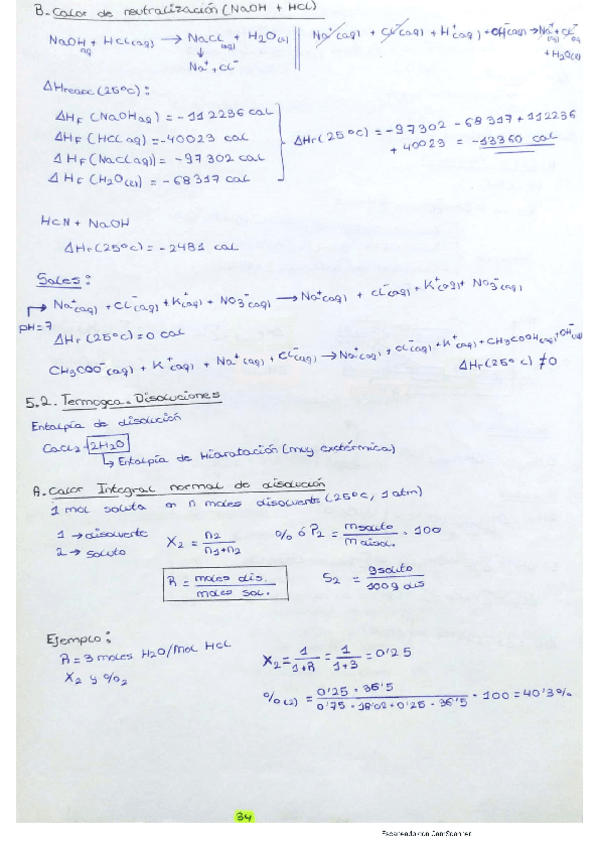 B. Calor de neutralización (NaOH + HCl)
NaOH aq + HCl(aq) → NaCl (aq) + H2O(l) || Na+(aq) + Cl-(aq) + H+(aq) + OH-(aq) → Na+(aq) + Cl-(aq) + H2O(l)
↓
Na+, Cl-
ΔHreacc (25ºC):
ΔHf (NaOH aq) = -112236 cal
ΔHf (HCl aq) = -40023 cal
ΔHf (NaCl(aq)) = -97302 cal
ΔHf (H2O(l)) = -68317 cal
ΔHr (25ºC) = -97302 - 68317 + 112236
+ 40023 = -13360 cal
HCN + NaOH
ΔHr (25ºC) = -2481 cal
Sales:
Na+(aq) + Cl-(aq) + K+(aq) + NO3-(aq) → Na+(aq) + Cl-(aq) + K+(aq) + NO3-(aq)
pH=7
ΔHr (25ºC) = 0 cal
CH3COO-(aq) + K+(aq) + Na+(aq) + Cl-(aq) → Na+(aq) + Cl-(aq) + K+(aq) + CH3COOH(aq) + OH-(aq)
ΔHr (25ºC) ≠ 0
5.2. Termoqca. Disoluciones
Entalpía de disolución
CaCl2 · 2H2O
↳ Entalpía de Hidratación (muy exotérmica)
A. Calor Integral normal de disolución
1 mol soluto en n moles disolvente (25ºC, 1 atm)
1 → disolvente
2 → soluto
X2 = n2 / n1+n2
% ó P2 = msoluto / mdisol. · 100
R = moles dis. / moles sol.
S2 = gsoluto / 100g dis
Ejemplo:
R = 3 moles H2O/mol HCl
X2 y %2
X2 = 1 / 1+R = 1 / 1+3 = 0'25
%(2) = 0'25 · 36'5 / 0'75 · 18'02 + 0'25 · 36'5 · 100 = 40'3%
34
Escaneado con CamScanner